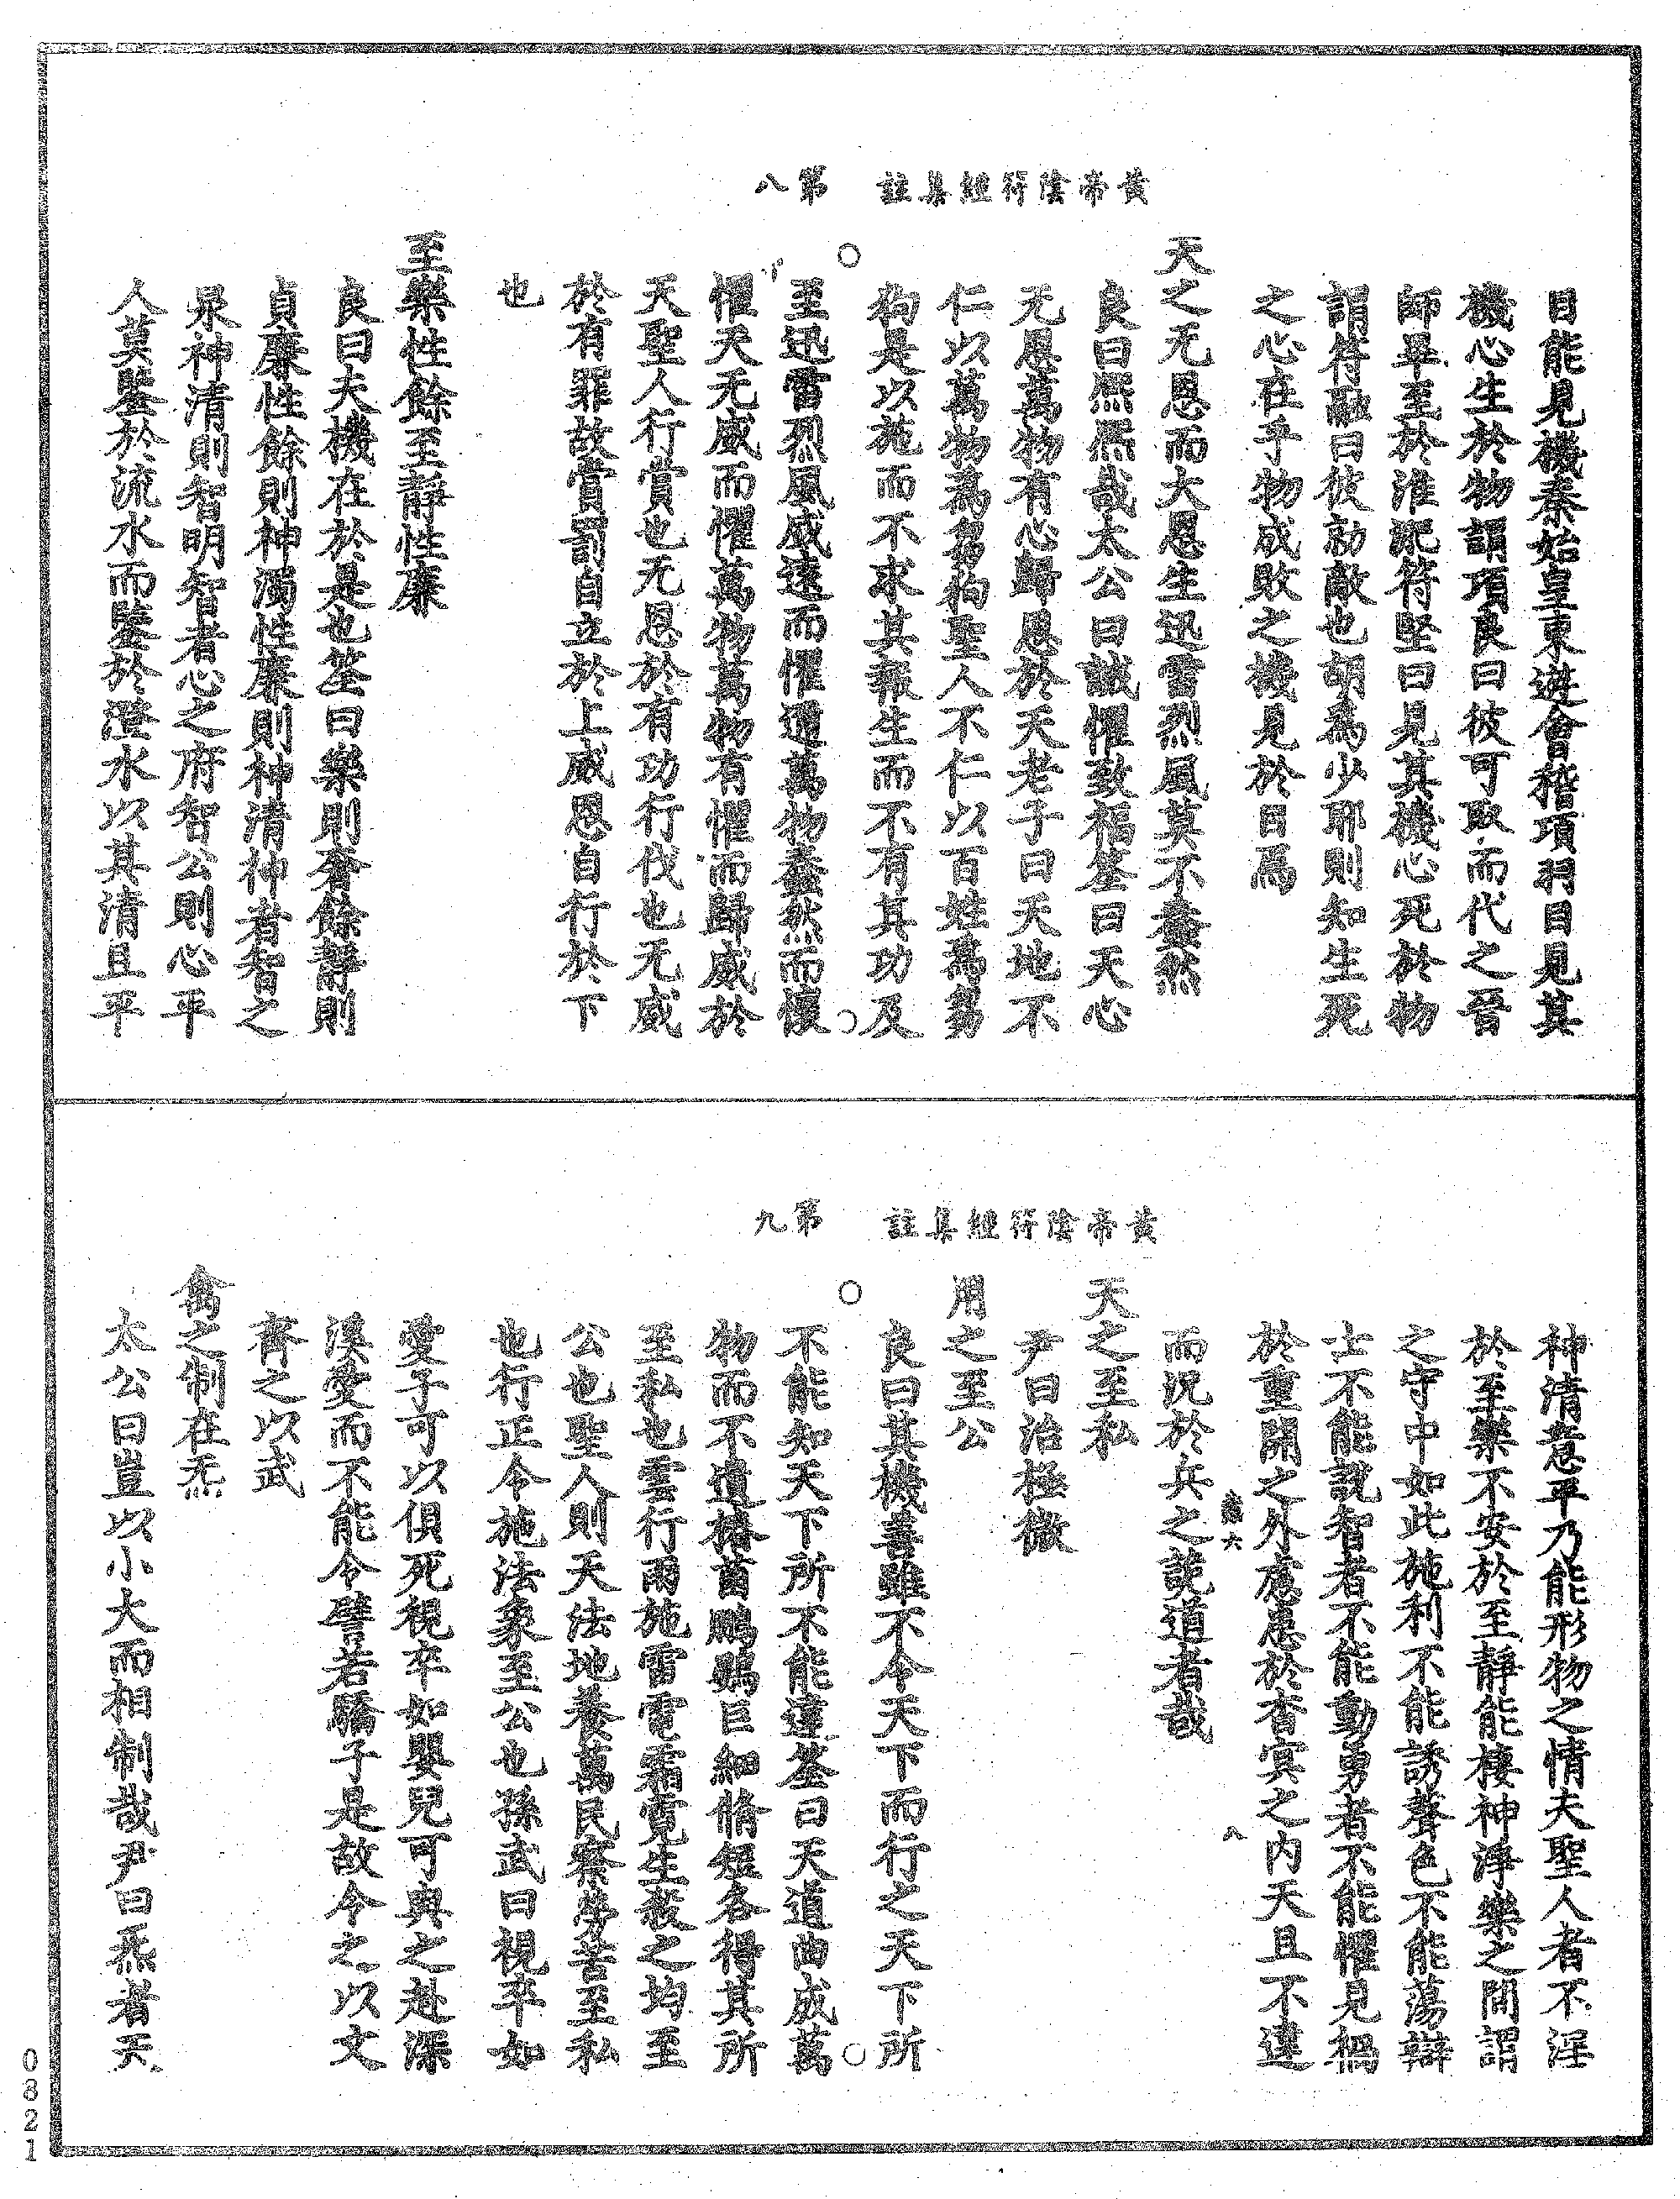 黃帝陰符經集註　第八
目能見機秦始皇東遊會稽項羽目見其
機心生於物謂項良曰彼可取而代之晉
師畢至於淮淝符堅曰見其機心死於物
謂符融曰彼勍敵也胡爲少耶則知生死
之心在乎物成敗之機見於目焉
天之无恩而大恩生迅雷烈風莫不蠢然
良曰熙熙哉太公曰誡懼致福筌曰天心
无恩萬物有心歸恩於天老子曰天地不
仁以萬物爲芻狗聖人不仁以百姓爲芻
狗是以施而不求其報生而不有其功及
至迅雷烈風威遠而懼邇萬物蠢然而懷
懼天无威而懼萬物萬物有懼而歸威於
天聖人行賞也无恩於有功行伐也无威
於有罪故賞罰自立於上威恩自行於下
也
至樂性餘至靜性廉
良曰夫機在於是也筌曰樂則奢餘靜則
貞廉性餘則神濁性廉則神清神者智之
泉神清則智明智者心之府智公則心平
人莫鑒於流水而鑒於澄水以其清且平
黃帝陰符經集註　第九
神清意平乃能形物之情夫聖人者不淫
於至樂不安於至靜能棲神淨樂之間謂
之守中如此施利不能誘聲色不能蕩辯
士不能說智者不能動勇者不能懼見禍
於重開之外慮患於杳冥之内天且不違
六
八
而況於兵之詭道者哉
天之至私
尹曰治極微
用之至公
良曰其機善雖不令天下而行之天下所
不能知天下所不能違筌曰天道曲成萬
物而不遺椿菌鵬鷃巨細脩短各得其所
至私也雲行雨施雷電霜霓生殺之均至
公也聖人則天法地養萬民察勞苦至私
也行正令施法象至公也孫武曰視卒如
愛子可以俱死視卒如嬰兒可與之赴深
溪愛而不能令譬若驕子是故令之以文
齊之以武
禽之制在炁
太公曰豈以小大而相制哉尹曰炁者天
0821